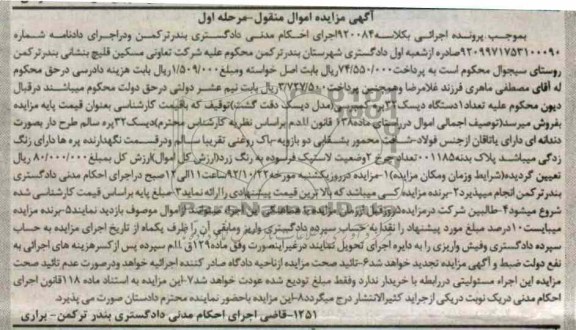 آگهی مزایده اموال منقول-مرحله اول
بموجب پرونده اجرائی بکلاسه۹۲۰۰۸۴اجرای احکام مدنی دادگستری بندرترکمن ودراجرای دادنامه شماره
۹۲۰۹۹۷۱۷۵۳۱۰۰۰۹۰صادره ازشعبه اول دادگستری شهرستان بندرترکمن محکوم علیه شرکت تعاونی مسکین قلیچ بنشانی بندرترکمن
روستای سیجوال محکوم است به پرداخت۷۴/۵۵۰/۰۰۰ریال بابت اصل خواسته ومبلغ۱/۵۰۹/۰۰۰ریال بابت هزینه دادرسی درحق محکوم
له آقای مصطفی ماهری فرزند غلامرضا وهمچنین پرداخت۳/۷۲۷/۵۰۰ریال بابت نیم عشر دولتی درحق دولت محکوم میباشند درقبال
دیون محکوم علیه تعداد۱دستگاه دیسک۳۲ مدل دیسک دفت گشت)توقیف که باقیمت کارشناسی بعنوان قیمت پایه مزایده
بفروش میرسد(توصیف اجمالی اموال درراستای ماده۶۳۸ قانون ا.د.م براساس نظریه کارشناس محترم)دیسک۳۲پره سالم طرح دار بصورت
دندانه ای دارای یاتاقان ازجنس فولاد-شفت محمور بشقابی دو بازویه-باک روغنی تقریبا سالم ودرقسمت نگهدارنده پره ها دارای زنگ
زدگی میباشد پلاک بدنه۰۰۱۱۸۵تعداد چرخ ۲وضعیت لاستیک فرسوده به رنگ زرد(ارزش کل اموال)ارزش کل بمبلغ۸۰/۰۰۰/۰۰۰ ریال
تعیین گردید(شرایط وزمان ومکان مزایده)۱-مزایده درروزیکشنبه مورخه۹۲/۱۰/۲۲ساعت۱۱الی۱۲صبح دراجرای احکام مدنی دادگستری
بندرترکمن انجام میپذیرد۲-برنده مزایده کسی میباشد که بالاترین قیمت پیشنهادی را ارائه نماید۳-مبلغ پایه براساس قیمت کارشناسی شده
شروع میشود۴-طالبین شرکت درمزایده۵روزقبل اززمان مزایده با هماهنگی این اجرا میتوانند ازاموال موصوف بازدید نمایند۵-برنده مزایده
میبایست۱۰درصد مبلغ مورد پیشنهاد را نقدا به حساب سپرده دادگستری واریز ومابقی آن را ظرف یکماه از تاریخ اجرای مزایده به حساب
سپرده دادگستری وفیش واریزی را به دایره اجرای تحویل نمایند درغیراینصورت وفق ماده۱۲۹ق ا.ا.م سپرده پس ازکسرهزینه های اجرائی به
نفع دولت ضبط و آگهی مزایده تجدید خواهد شد۶-تائید صحت مزایده ازناحیه دادگاه صادر کننده اجرائیه خواهد ودرصورت عدم تائید صحت
مزایده این اجراء مسئولیتی دررابطه با خریدار ندارد وفقط مبلغ تودیع شده عودت خواهد شد۷-این مزایده به استناد ماده ۱۱۸قانون اجرای
احکام مدنی دریک نوبت دریکی ازجراید کثیرالانتشار درج میگردد۸-این مزایده باحضور نماینده محترم دادستان صورت می پذیرد.
۱۲۵۱-قاضی اجرای احکام مدنی دادگستری بندر ترکمن- براری